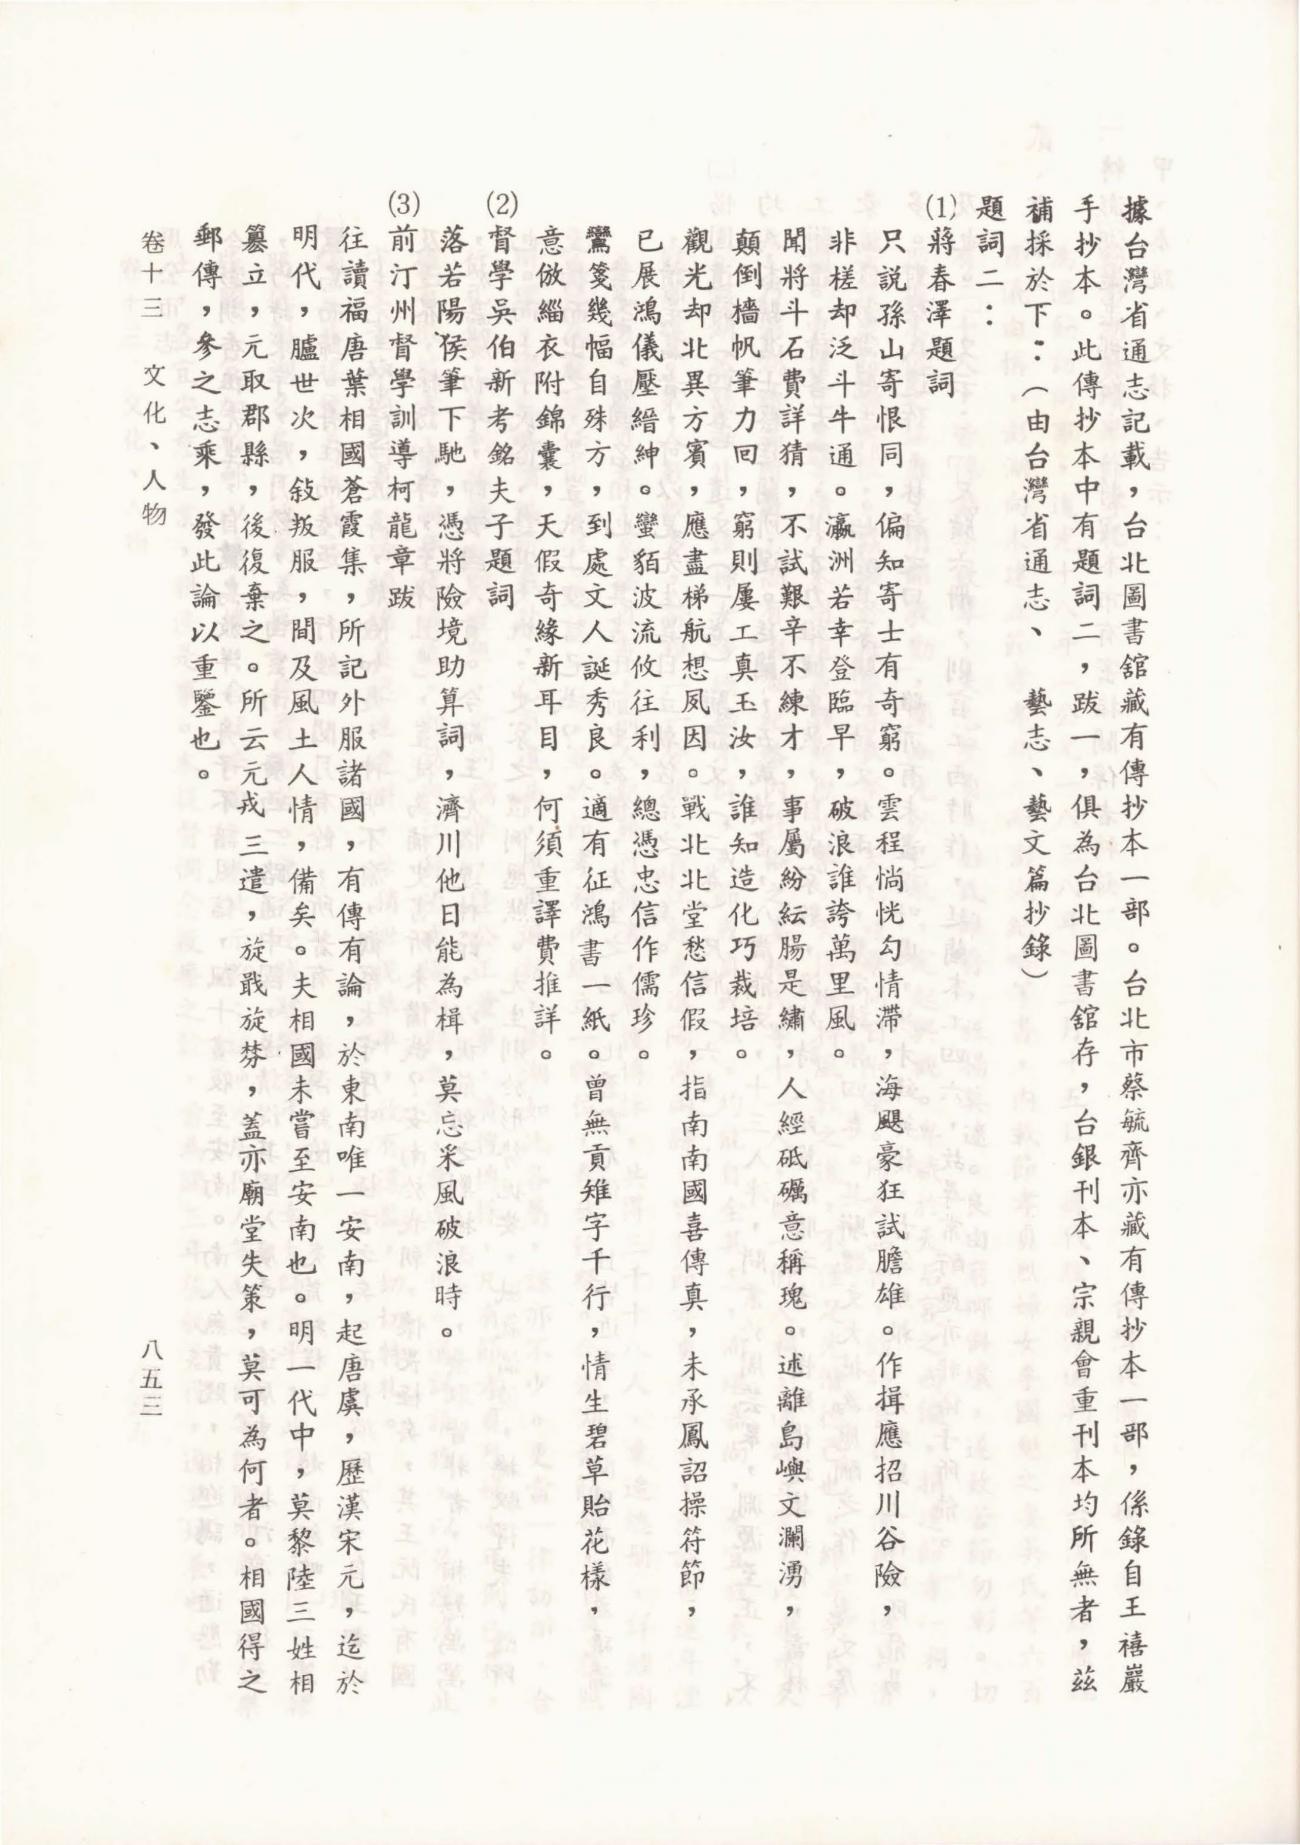 據台灣省通志記載，台北圖書舘藏有傳抄本一部。台北市蔡毓齊亦藏有傳抄本一部，係錄自王禧巖
手抄本。此傳抄本中有題詞二，跋一，俱為台北圖書舘存，台銀刊本、宗親會重刊本均所無者，茲
補採於下：（由台灣省通志、　藝志、藝文篇抄錄）
題詞二：
⑴蔣春澤題詞
只說孫山寄恨同，偏知寄士有奇窮。雲程惝恍勾情滯，海颶豪狂試膽雄。作揖應招川谷險，
非槎却泛斗牛通。瀛洲若幸登臨早，破浪誰誇萬里風。
聞將斗石費詳猜，不試艱辛不練才，事屬紛紜腸是繡，人經砥礪意稱瑰。述離島嶼文瀾湧，
顛倒檣帆筆力回，窮則屢工真玉汝，誰知造化巧裁培。
觀光却北異方賓，應盡梯航想夙因。戰北北堂愁信假，指南南國喜傳真，未承鳳詔操符節，
已展鴻儀壓縉紳。蠻貊波流攸往利，總憑忠信作儒珍。
鸞箋幾幅自殊方，到處文人誕秀良。適有征鴻書一紙。曾無貢雉字千行，情生碧草貽花樣，
意倣緇衣附錦囊，天假奇緣新耳目，何須重譯費推詳。
⑵督學吳伯新考銘夫子題詞
落若陽侯筆下馳，憑將險境助算詞，濟川他日能為楫，莫忘采風破浪時。
⑶前汀州督學訓導柯龍章跋
往讀福唐葉相國蒼霞集，所記外服諸國，有傳有論，於東南唯一安南，起唐虞，歷漢宋元，迄於
明代，臚世次，敍叛服，間及風土人情，備矣。夫相國未嘗至安南也。明一代中，莫黎陸三姓相
篡立，元取郡縣，後復棄之。所云元戎三遣，旋戢旋棼，蓋亦廟堂失策，莫可為何者。相國得之
郵傳，參之志乘，發此論以重鑒也。
卷十三　文化、人物
八五三